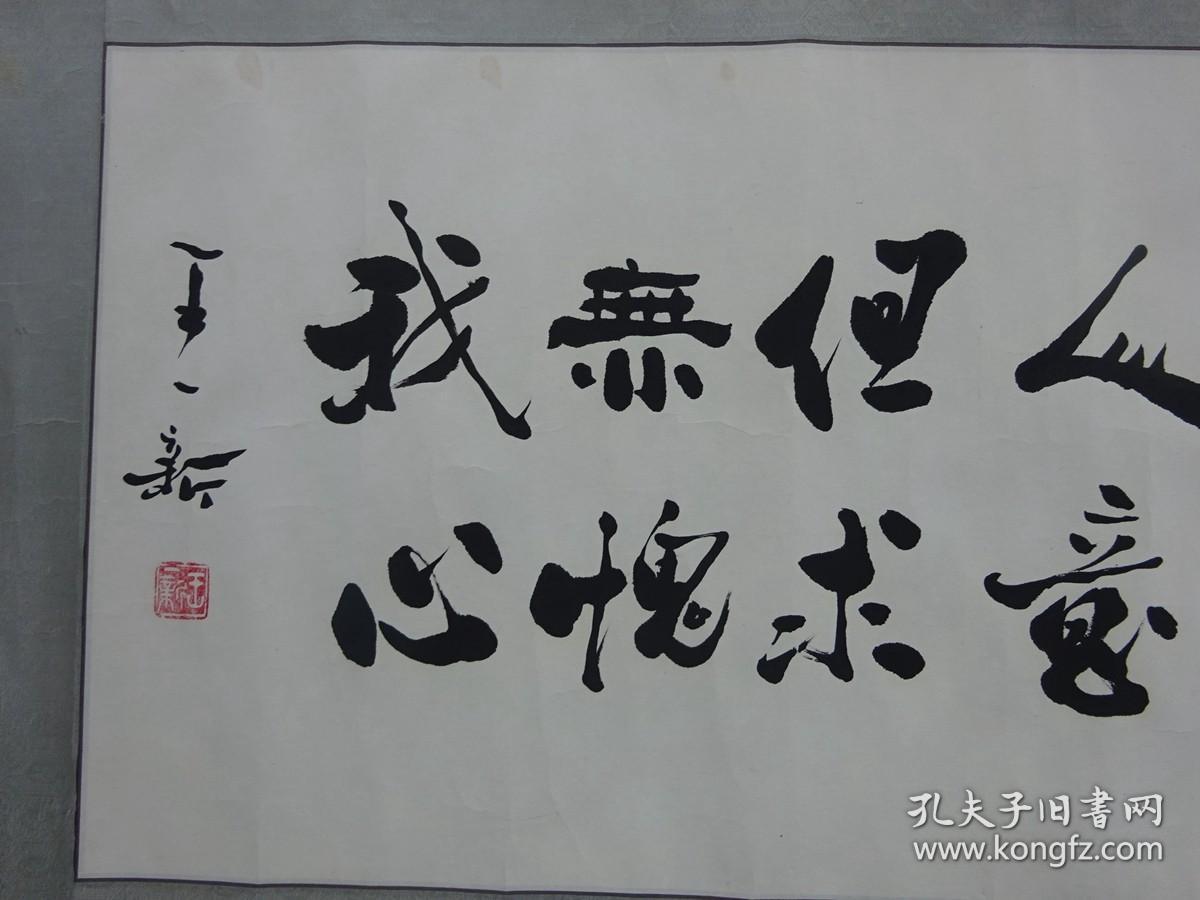 人意
但求
無愧
我心
王一新
孔夫子旧書网
www.kongfz.com